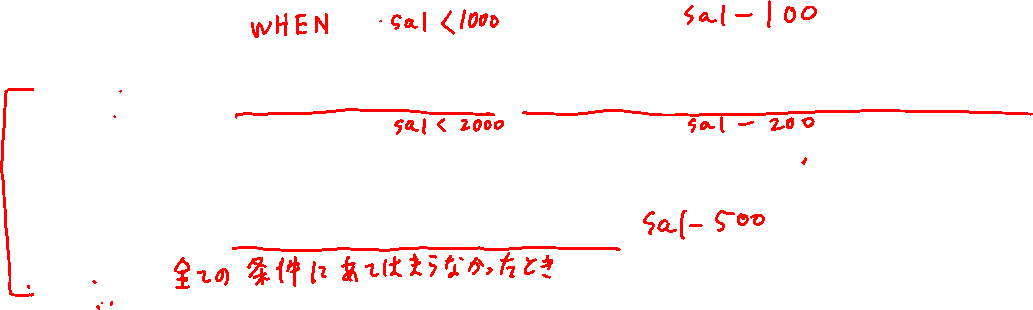 WHEN sal < 1000 sal - 100
sal < 2000 sal - 200
sal - 500
全ての条件にあてはまらなかったとき